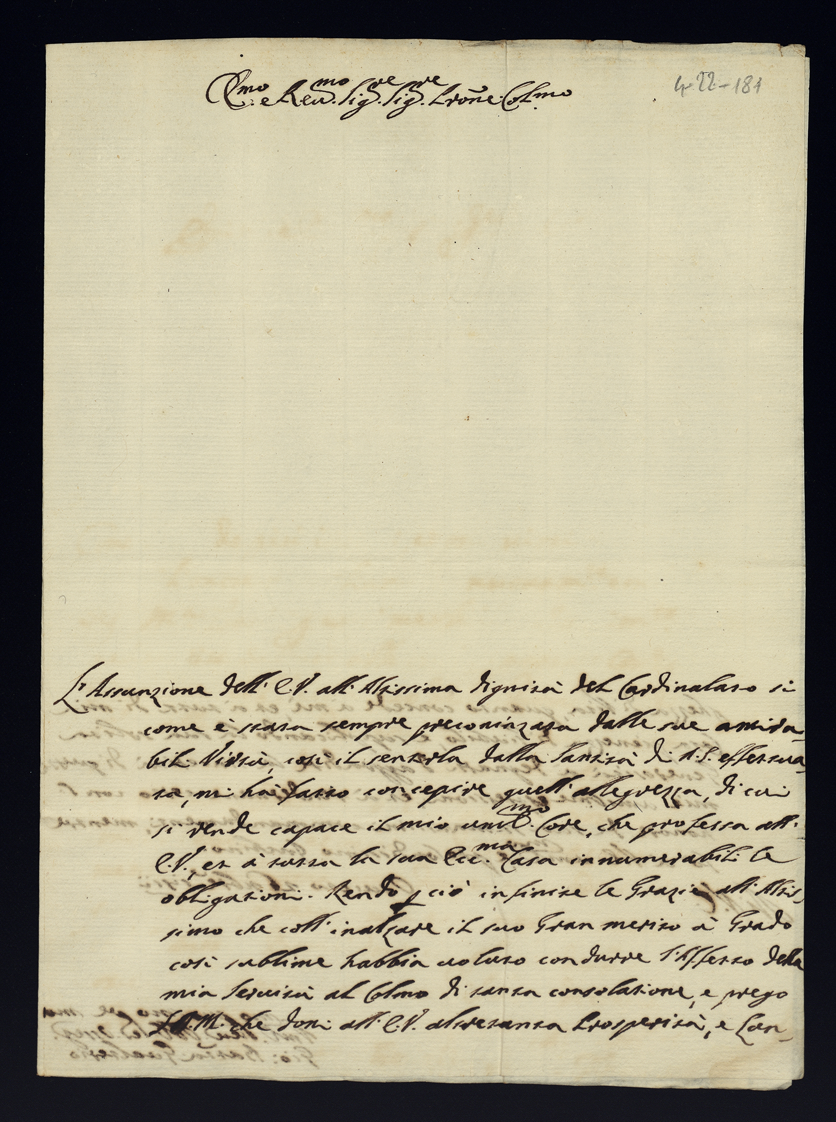 E.mo e Reu.mo Sig.re Sig.re Prõne Colmo
422-181
L'Assunzione dell' E.V. all' Altissima dignità del Cardinalato si
come è stata sempre preconizzata dalle sue amira-
bili Virtù, così il sentirla dalla Santità di N.S. effettua-
ta, mi hà fatto concepire quell' allegrezza, di cui
si rende capace il mio umil.mo Core, che professa all'
E.V., et à tutta la sua Ecc.ma Casa innumerabili le
obligationi. Rendo p ciò infinite le Grazie all' Altis-
simo che coll' inalzare il suo Gran merito à Grado
così sublime habbia uoluto condurre l'Affetto della
mia Seruitù al Colmo di tanta consolatione, e prego
S.D.M. che doni all' E.V. altretanta Prosperità, e Lon-